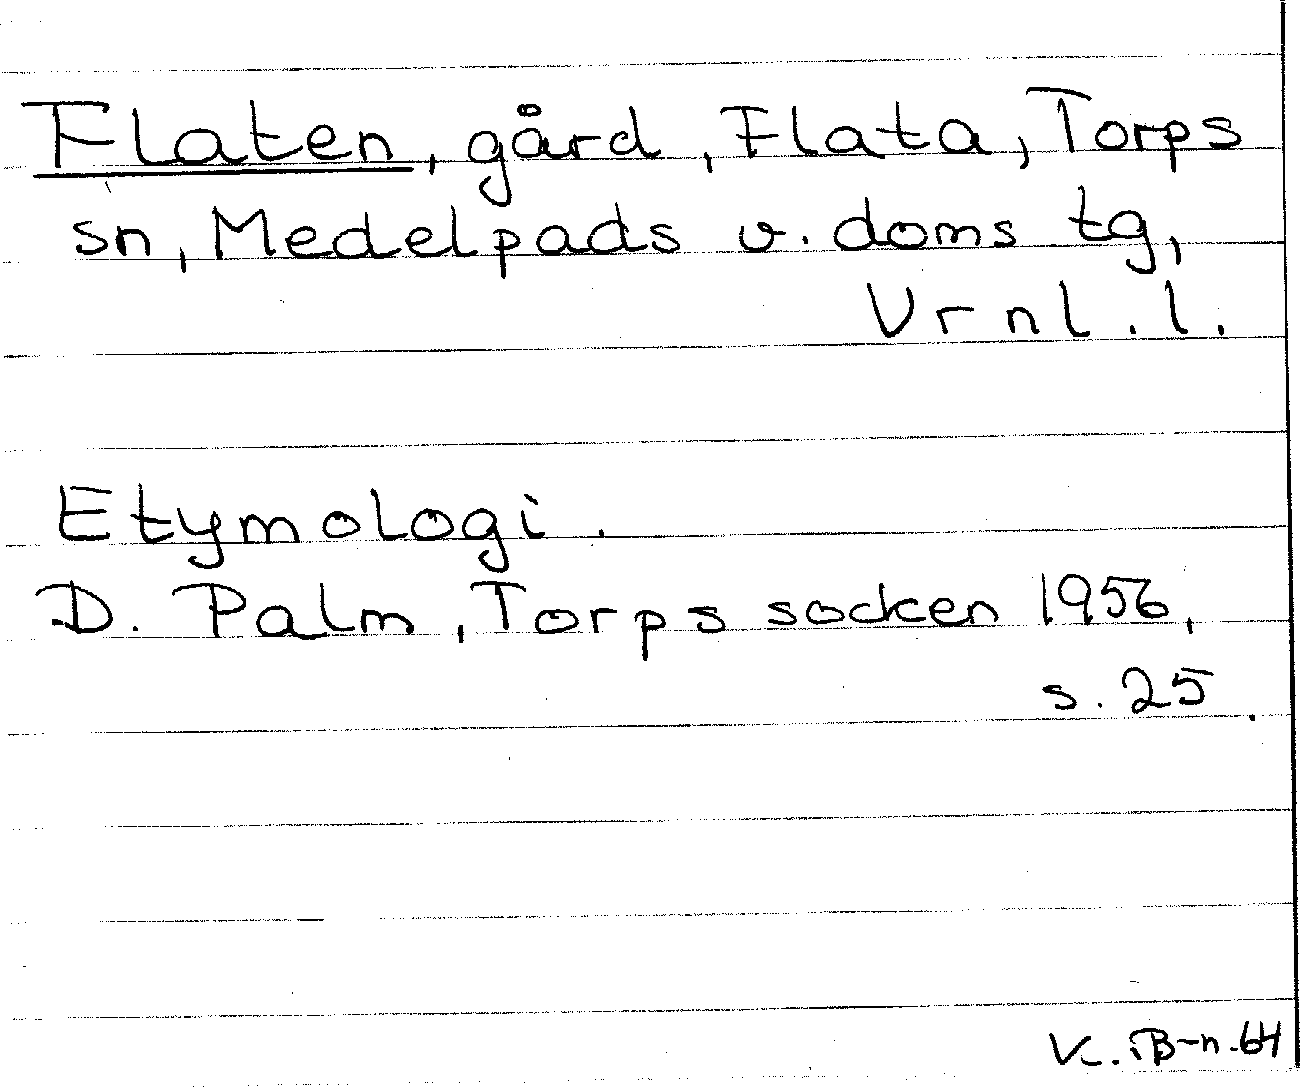 Flaten, gård, Flata, Torps
sn, Medelpads v. doms tg,
Vrnl. l.
Etymologi.
D. Palm, Torps socken 1956,
s. 25.
V. B-n. 64